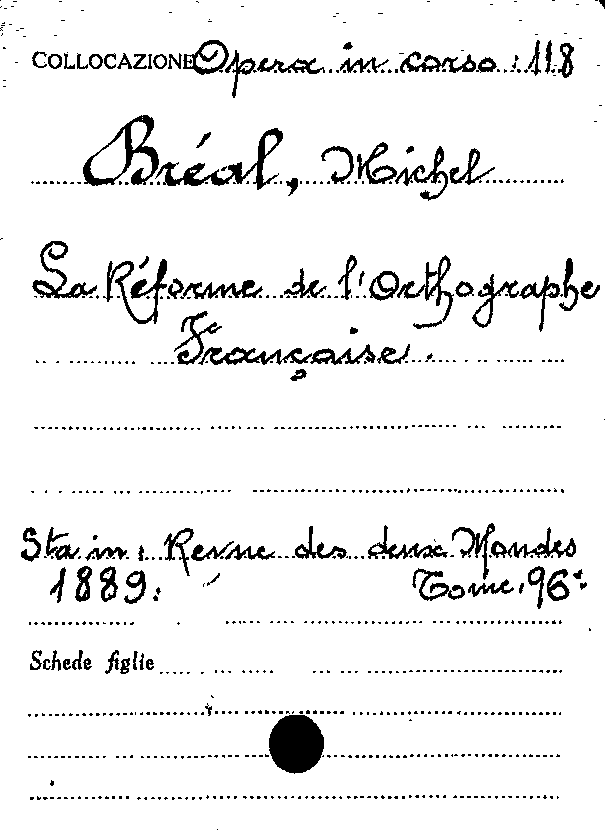 COLLOCAZIONE Opera in corso : 118
Bréal, Michel
La Réforme de l'Orthographe
Française.
Sta in : Revue des deux Mondes
1889. Tome. 96º
Schede figlie